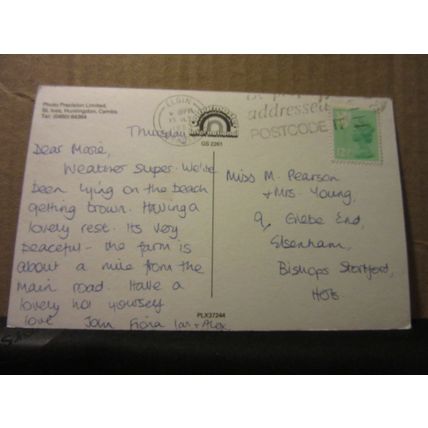 Photo Precision Limited,
St. Ives, Huntingdon, Cambs.
Tel: (0480) 64364
ELGIN
addressed
POSTCODE IT
GS 2261
Thursday
Dear Marie,
Weather super. We've
been lying on the beach
getting brown. Having a
lovely rest. Its very
peaceful - the farm is
about a mile from the
main road. Have a
lovely hol yourself
love John Fiona Ian + Alex
Miss M. Pearson
+ Mrs. Young,
9, Glebe End,
Elsenham,
Bishops Stortford,
Hots
PLX37244